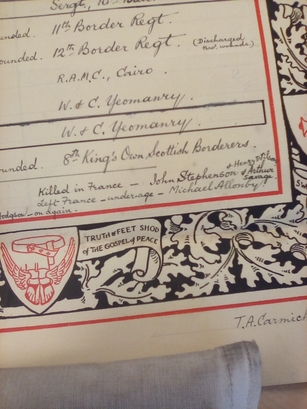 Sergt,
unded. 11th Border Regt.
ounded. 12th Border Regt. (Discharged,
wounds.)
R.A.M.C., Cairo.
W. & C. Yeomanry.
W. & C. Yeomanry.
unded. 8th King's Own Scottish Borderers.
Killed in France – John Stephenson & Arthur Savage.
Left France – under-age – Michael Allonby.
Hodgson – on again.
TRUTH & FEET SHOD
of THE GOSPEL of PEACE
T.A. Carmich